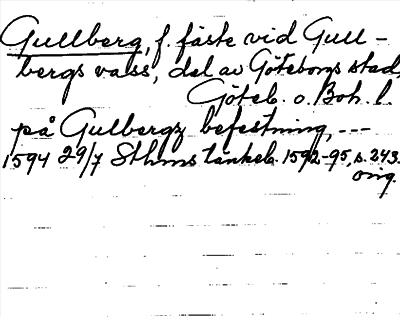 Gullberg, f. fäste vid Gull-
bergs vass, del av Göteborgs stad,
Göteb. o. Boh. l.
på Gulbergz befestning, ---
1594 29/7 Sthms tänkeb. 1592-95, s. 243.
orig.